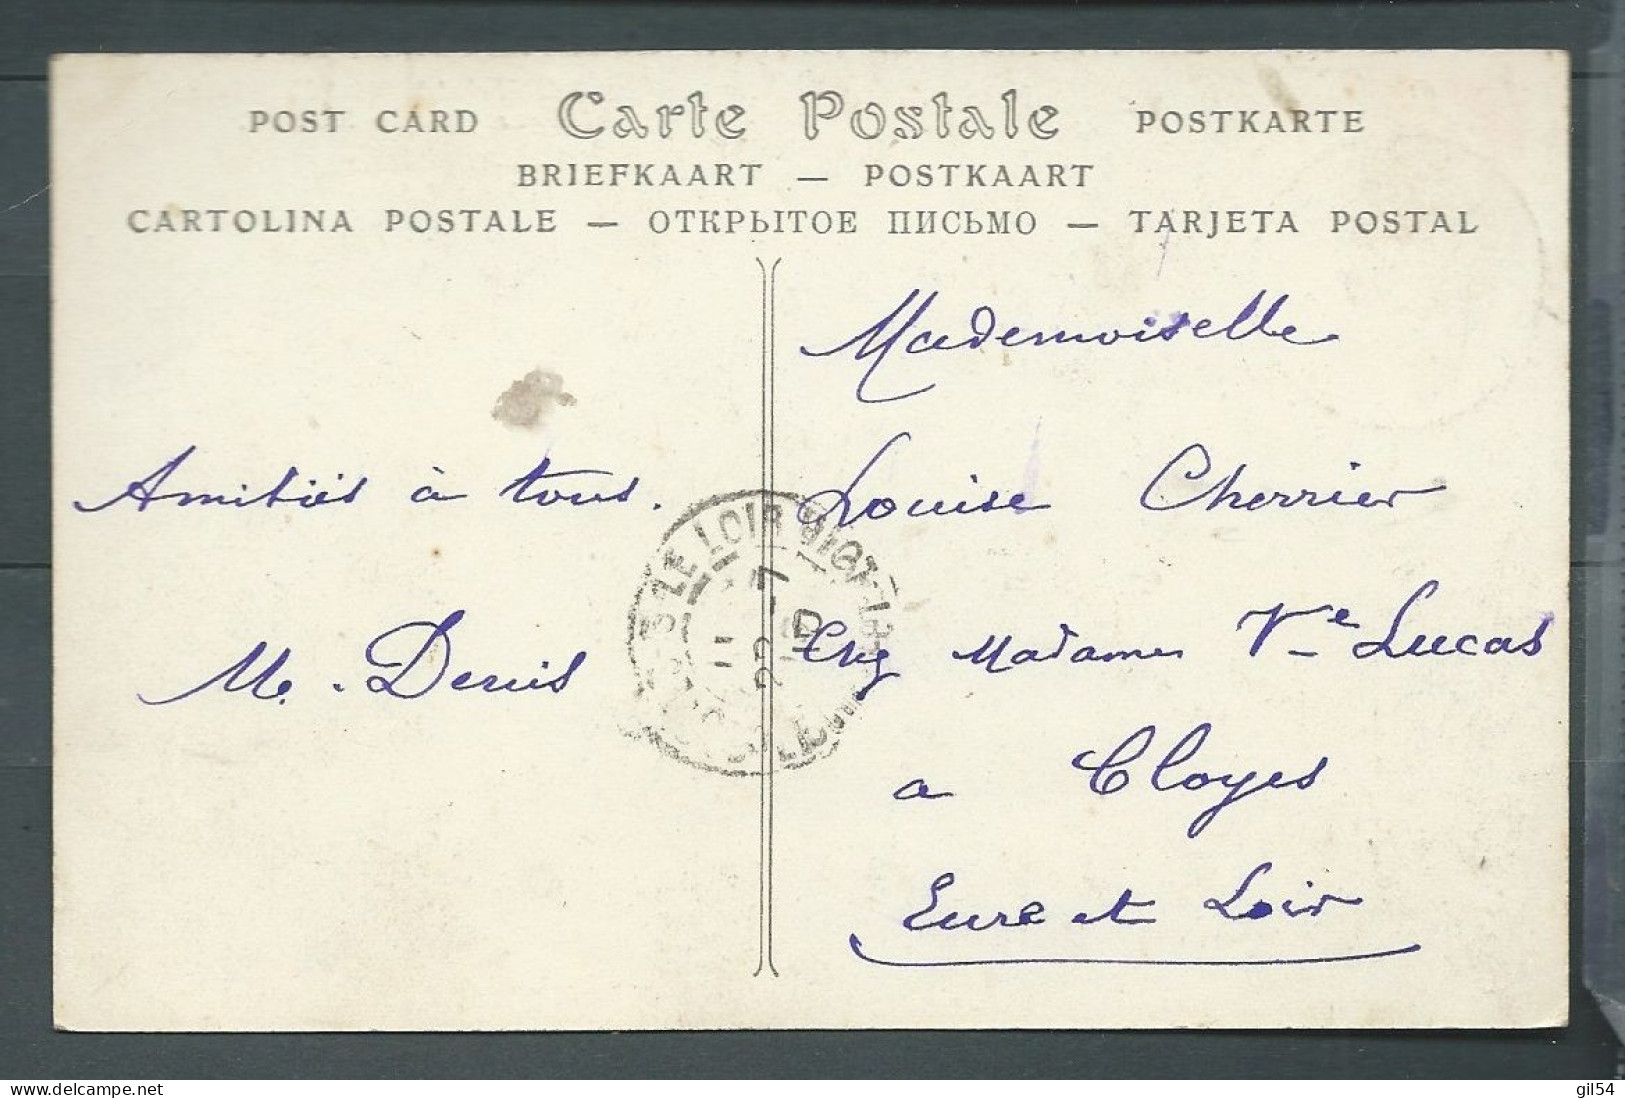 POST CARD Carte Postale POSTKARTE
BRIEFKAART — POSTKAART
CARTOLINA POSTALE — ОТКРЫТОЕ ПИСЬМО — TARJETA POSTAL
Amitiés à tous.
M. Denis
Mademoiselle
Louise Cherrier
Chez Madame Vve Lucas
a Cloyes
Eure et Loir
LE LOIR
delcampe.net
gil54